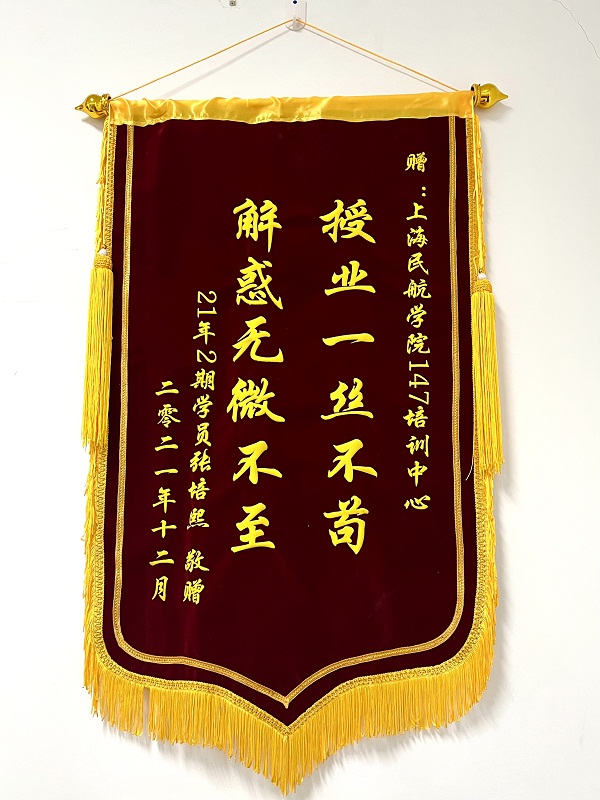 赠：上海民航学院147培训中心
授业一丝不苟
解惑无微不至
21年2期学员张培熙 敬赠
二零二一年十二月